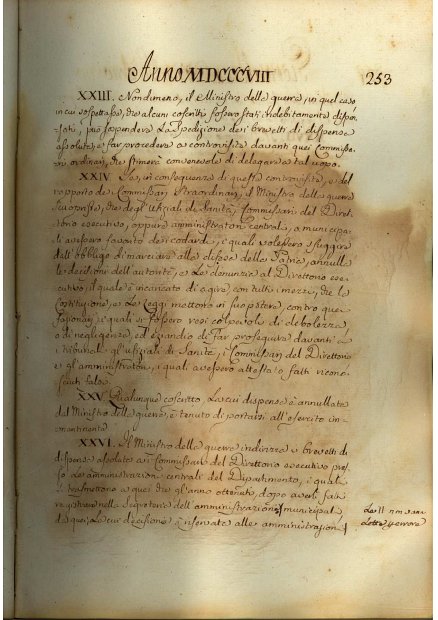 Anno MDCCCVIII
253
XXIII. Nondimeno, il Ministro della guerra, in quel caso
in cui sospettasse, che alcuni coscritti fossero stati indebitamente dispen-
sati, può sospendere la spedizione dei brevetti di dispensa
assoluta, e far procedere a controvisita davanti quei Commissa-
ri ordinari, che stimerà convenevole di delegare a tal uopo.
XXIV. Se, in conseguenza di questa controvisita, e del
rapporto de' Commissari straordinari, il Ministro della guerra
scuoprisse, che degli Ufiziali di Sanità, Commissari del Diret-
torio esecutivo, oppure amministratori centrali, o municipa-
li avessero favorito dei codardi, i quali volessero sfuggire
dall'obbligo di marciare alla difesa della Patria, annulla
le decisioni dell'autorità, e le denunzia al Direttorio ese-
cutivo, il quale è incaricato di agire con tutti i mezzi, che la
Costituzione, e le Leggi mettono in suo potere, contro quei
funzionari, i quali si fossero resi colpevoli di debolezza,
o di negligenza, ed eziandio di far proseguire davanti a'
tribunali gl'ufiziali di Sanità, i Commissari del Direttorio
e gl'amministratori, i quali avessero attestato fatti ricono-
sciuti falsi.
XXV. Qualunque coscritto, la cui dispensa è annullata
dal Ministro della guerra, è tenuto di portarsi all'esercito in-
mantinente.
XXVI. Il Ministro della guerra indirizza i brevetti di
dispensa assoluta ai Commissari del Direttorio esecutivo pres-
so le amministrazioni centrali del Dipartimento, i quali
li trasmettono a quei che gl'anno ottenuti, dopo averli fatti
registrare nella Segreteria dell'amministrazione municipale
da cui, la cui decisione è riservata alle amministrazioni